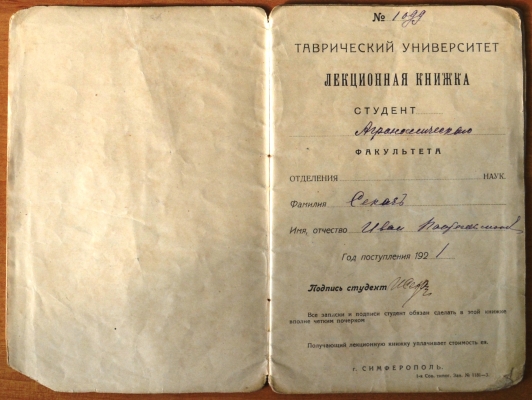 № 1099
ТАВРИЧЕСКИЙ УНИВЕРСИТЕТ
ЛЕКЦИОННАЯ КНИЖКА
СТУДЕНТ
Агрономического
ФАКУЛЬТЕТА
ОТДЕЛЕНИЯ НАУК.
Фамилия
Имя, отчество Иван
Год поступления 1921
Подпись студент
Все записи и подписи студент обязан сделать в этой книжке
вполне четким почерком
Получающий лекционную книжку уплачивает стоимость ее.
г. СИМФЕРОПОЛЬ.